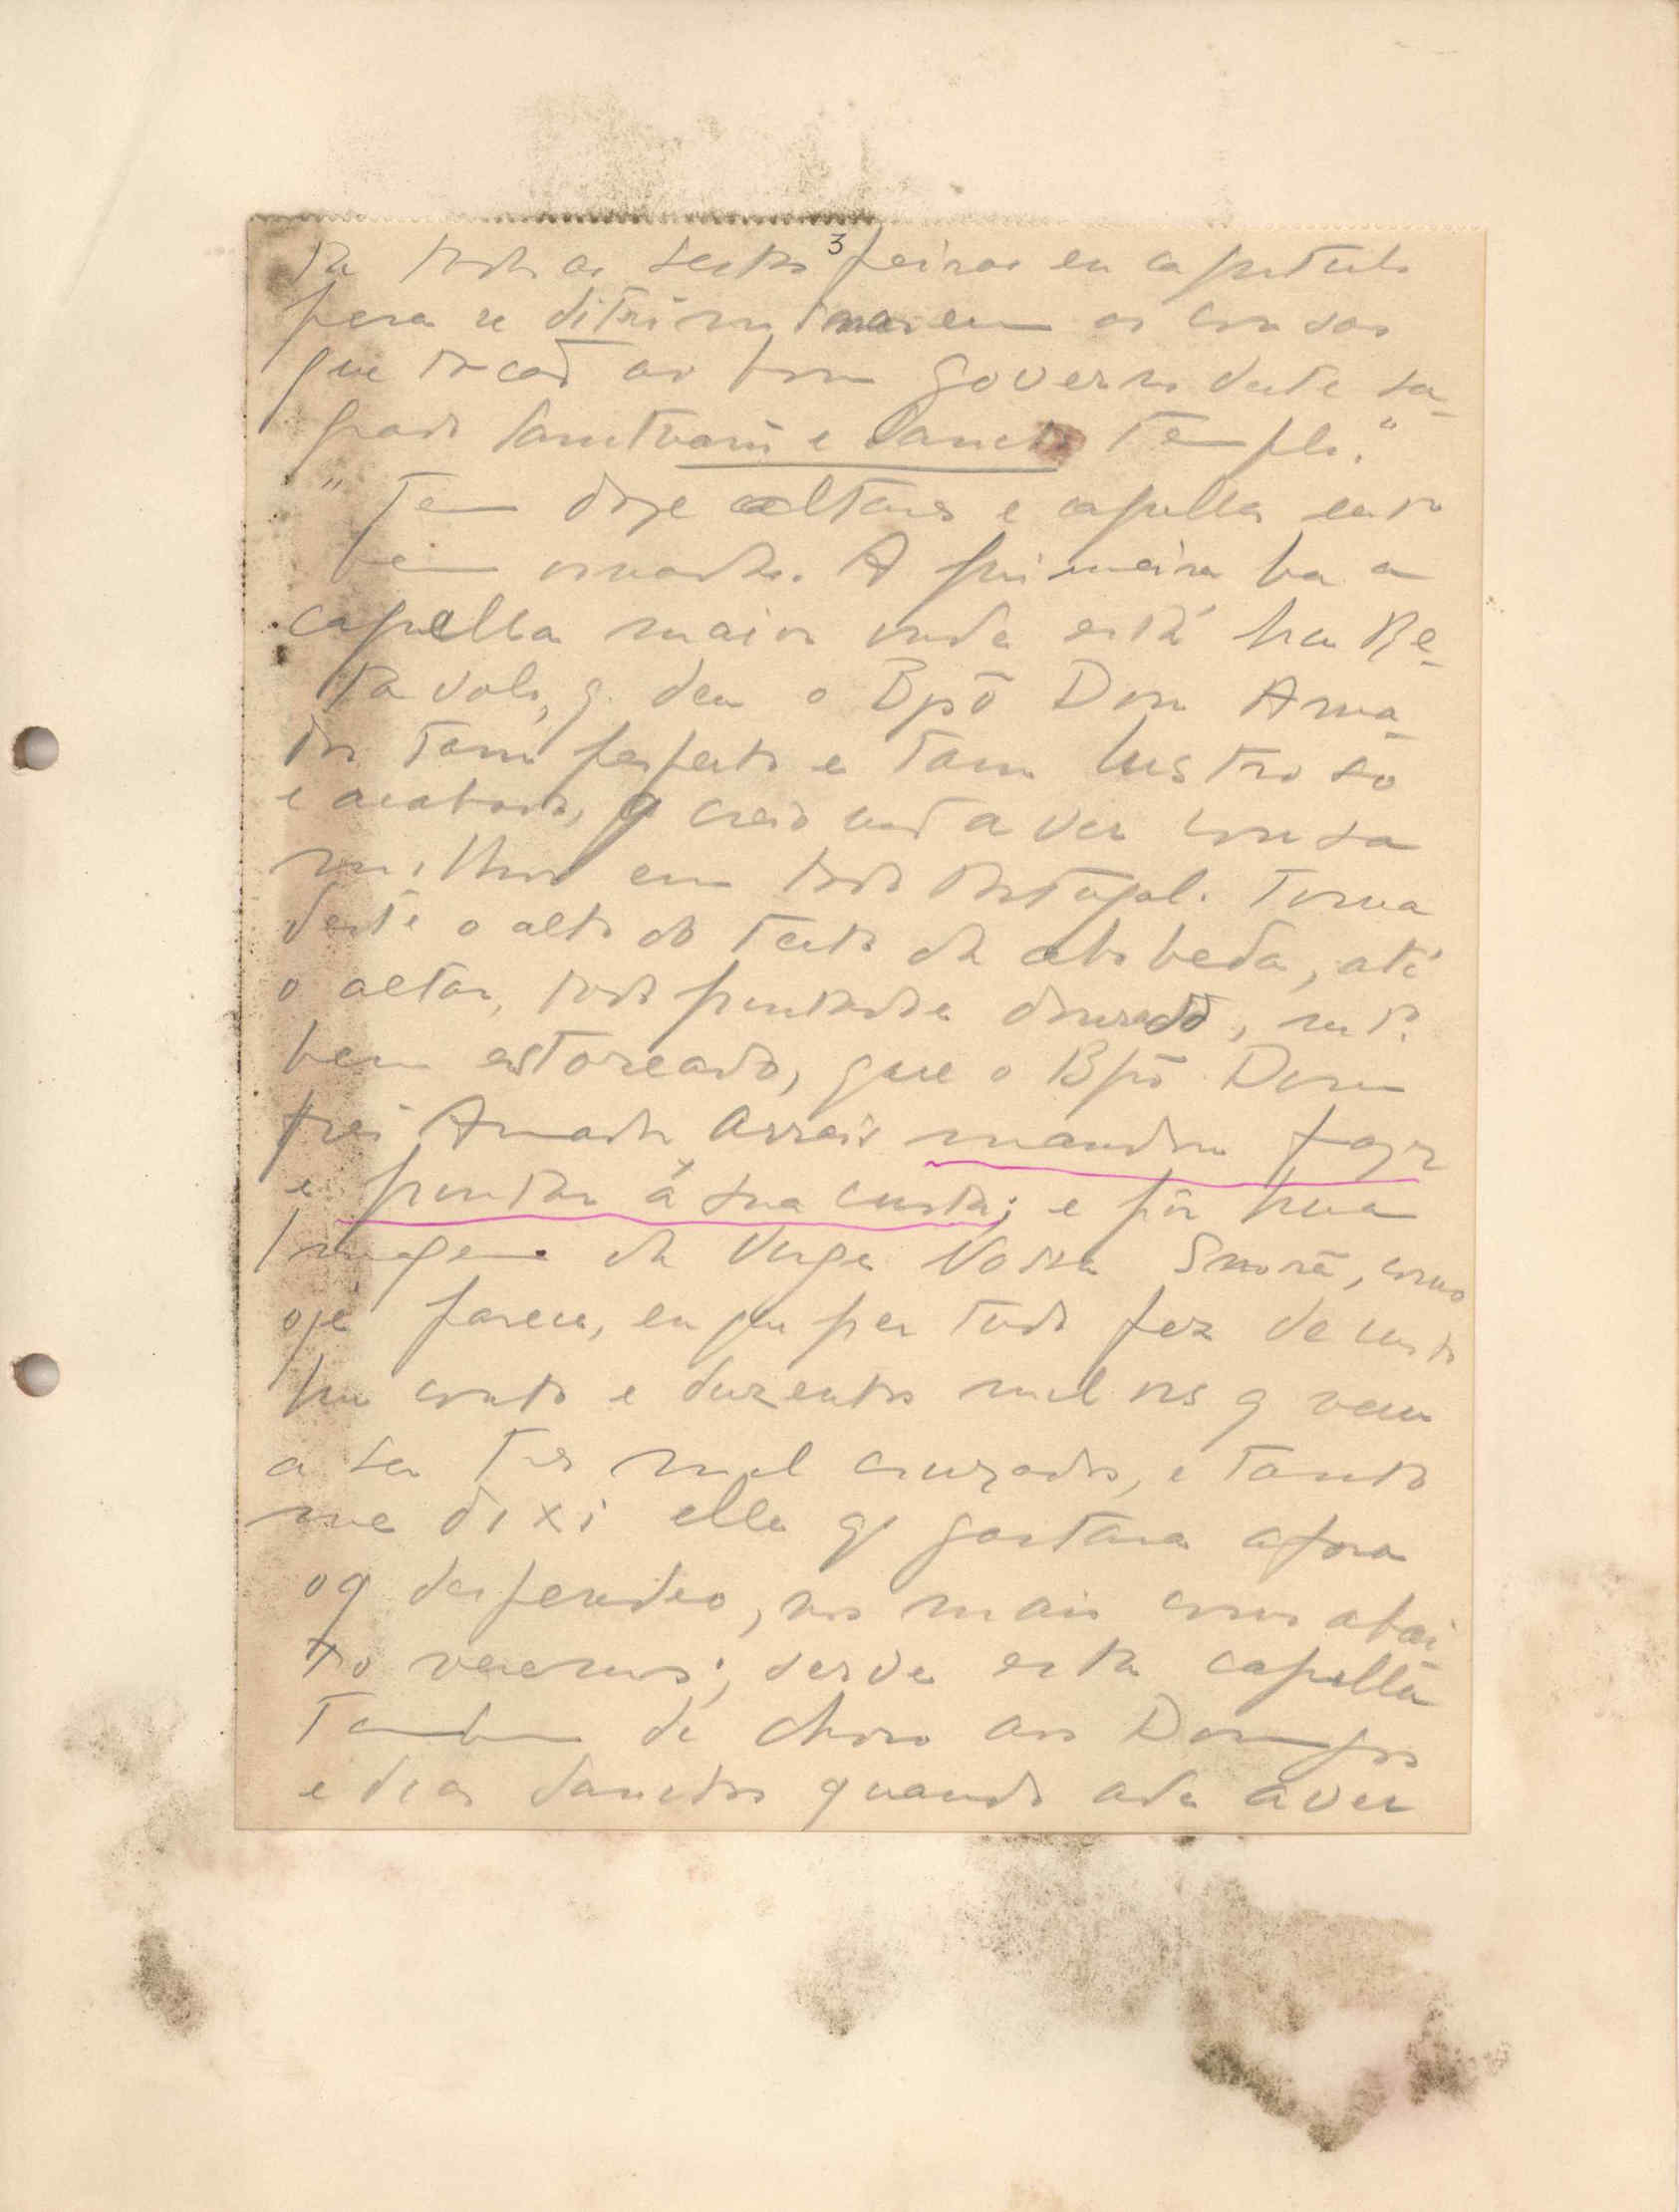 3
ta todas as sestas feiras en capitulo
pera se ditriminarem as cousas
que tocaõ ao bom governo deste sa-
grado Sanctuario e Sancto Templo."
"Tem doze altares e capellas
bem ornadas. A primeira ha a
capella maior onde está hu Re-
tavolo, q deu o Bpõ Dom Ama-
dor tam perfeito e tam lustroso
e acabado, q creio naõ aver cousa
milhor em todo Portugal. Toma
deste o alto do tecto da abobeda, até
o altar, todo pintado e dourado, mto
bem estoreado, que o Bpõ Dom
frei Amador Arrais mandou fazer
e pintar á sua custa; e pôr hua
Imagem da Virge Nossa Snorã, como
ojé parece, en que per tudo fez de custo
hu conto e duzentos mil rs q vem
a ser tres mil cruzados, e tanto
me dixi elle q gastara afora
o q despendeo, no mais como abai-
xo veremos; serve esta capella
Tambem de choro aos Domingos
e dias Sanctos quando ada aver